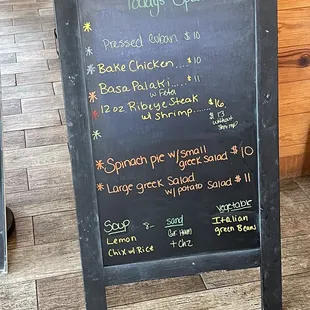 Today's Spe
Pressed Cuban $10
Bake Chicken.... $10
Basa Palaki..... $11
w/ Feta
12oz Ribeye Steak
w/ shrimp...... $16.
$13
without
shrimp
Spinach pie w/small
greek salad $10
Large greek Salad
w/ potato Salad $11
Soup & Sand vegetable
Lemon Gr. Ham Italian
Chix w/ Rice + Chz green Beans